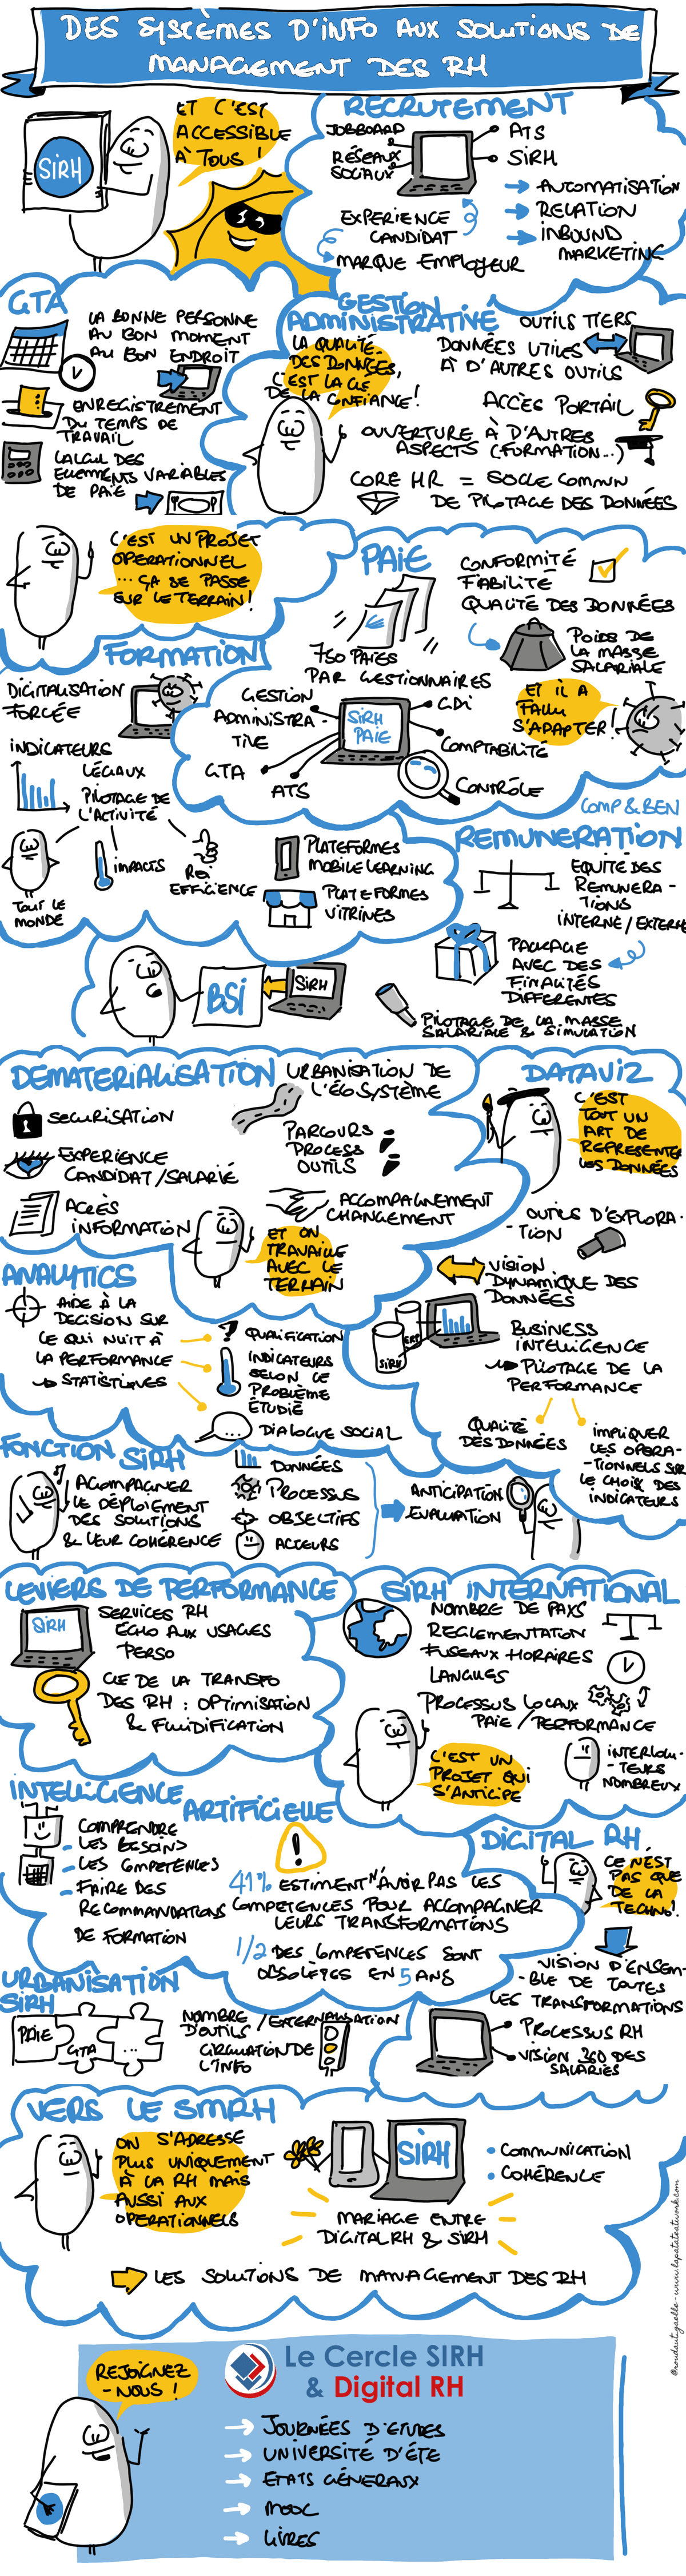 DES SYSTÈMES D'INFO AUX SOLUTIONS DE
MANAGEMENT DES RH
SIRH
ET C'EST
ACCESSIBLE
À TOUS !
RECRUTEMENT
JOBBOARD
RÉSEAUX
SOCIAUX
ATS
SIRH
AUTOMATISATION
RELATION
INBOUND
MARKETING
EXPERIENCE
CANDIDAT
MARQUE EMPLOYEUR
GTA
LA BONNE PERSONNE
AU BON MOMENT
AU BON ENDROIT
ENREGISTREMENT
DU TEMPS DE
TRAVAIL
CALCUL DES
ELEMENTS VARIABLES
DE PAIE
GESTION
ADMINISTRATIVE
LA QUALITÉ
DES DONNÉES,
C'EST LA CLÉ
DE LA CONFIANCE !
OUTILS TIERS
DONNÉES UTILES
À D'AUTRES OUTILS
ACCÈS PORTAIL
OUVERTURE À D'AUTRES
ASPECTS (FORMATION...)
CORE HR = SOCLE COMMUN
DE PILOTAGE DES DONNÉES
C'EST UN PROJET
OPERATIONNEL
... ÇA SE PASSE
SUR LE TERRAIN !
PAIE
CONFORMITÉ
FIABILITÉ
QUALITÉ DES DONNÉES
750 PAIES
PAR GESTIONNAIRES
POIDS DE
LA MASSE
SALARIALE
ET IL A
FALLU
S'ADAPTER !
GESTION
ADMINISTRA-
TIVE
GTA
ATS
SIRH
PAIE
GDI
COMPTABILITÉ
CONTRÔLE
FORMATION
DIGITALISATION
FORCÉE
INDICATEURS
LÉGAUX
PILOTAGE DE
L'ACTIVITÉ
TOUT LE
MONDE
IMPACTS
ROI
EFFICIENCE
PLATEFORMES
MOBILE LEARNING
PLATEFORMES
VITRINES
COMP & BEN
REMUNERATION
EQUITÉ DES
REMUNERA-
TIONS
INTERNE / EXTERNE
PACKAGE
AVEC DES
FINALITÉS
DIFFERENTES
PILOTAGE DE LA MASSE
SALARIALE & SIMULATION
BSI
SIRH
DEMATERIALISATION
SECURISATION
EXPERIENCE
CANDIDAT / SALARIÉ
ACCÈS
INFORMATION
URBANISATION DE
L'ÉCOSYSTÈME
PARCOURS
PROCESS
OUTILS
ACCOMPAGNEMENT
CHANGEMENT
ET ON
TRAVAILLE
AVEC LE
TERRAIN
DATAVIZ
C'EST
TOUT UN
ART DE
REPRESENTER
LES DONNÉES
OUTILS D'EXPLORA-
TION
VISION
DYNAMIQUE DES
DONNÉES
SIRH
BUSINESS
INTELLIGENCE
PILOTAGE DE LA
PERFORMANCE
QUALITÉ
DES DONNÉES
IMPLIQUER
LES OPERA-
-TIONNELS SUR
LE CHOIX DES
INDICATEURS
ANALYTICS
AIDE À LA
DECISION SUR
CE QUI NUIT À
LA PERFORMANCE
STATISTIQUES
QUALIFICATION
INDICATEURS
SELON LE
PROBLÈME
ÉTUDIÉ
DIALOGUE SOCIAL
FONCTION SIRH
ACCOMPAGNER
LE DÉPLOIEMENT
DES SOLUTIONS
& LEUR COHÉRENCE
DONNÉES
PROCESSUS
OBJECTIFS
ACTEURS
ANTICIPATION
EVALUATION
LEVIERS DE PERFORMANCE
SIRH
SERVICES RH
ECHO AUX USAGES
PERSO
CLÉ DE LA TRANSFO
DES RH : OPTIMISATION
& FLUIDIFICATION
SIRH INTERNATIONAL
NOMBRE DE PAYS
REGLEMENTATION
FUSEAUX HORAIRES
LANGUES
PROCESSUS LOCAUX
PAIE / PERFORMANCE
C'EST UN
PROJET QUI
S'ANTICIPE
INTERLOCU-
-TEURS
NOMBREUX
INTELLIGENCE
ARTIFICIELLE
COMPRENDRE
- LES BESOINS
- LES COMPETENCES
- FAIRE DES
RECOMMANDATIONS
DE FORMATION
!
41% ESTIMENT N'AVOIR PAS LES
COMPETENCES POUR ACCOMPAGNER
LEURS TRANSFORMATIONS
1/2 DES COMPETENCES SONT
OBSOLÈTES EN 5 ANS
DIGITAL RH
CE N'EST
PAS QUE
DE LA
TECHNO !
VISION D'ENSEM-
-BLE DE TOUTES
LES TRANSFORMATIONS
PROCESSUS RH
VISION 360 DES
SALARIÉS
URBANISATION
SIRH
PAIE
GTA
...
NOMBRE
D'OUTILS
/ EXTERNALISATION
CIRCULATION DE
L'INFO
VERS LE SMRH
ON S'ADRESSE
PLUS UNIQUEMENT
À LA RH MAIS
AUSSI AUX
OPERATIONNELS
SIRH
MARIAGE ENTRE
DIGITAL RH & SIRH
• COMMUNICATION
• COHÉRENCE
LES SOLUTIONS DE MANAGEMENT DES RH
@noudautigaelle - www.lapatateatwork.com
REJOIGNEZ
-NOUS !
Le Cercle SIRH
& Digital RH
JOURNÉES D'ETUDES
UNIVERSITÉ D'ÉTÉ
ETATS GÉNERAUX
MOOC
LIVRES